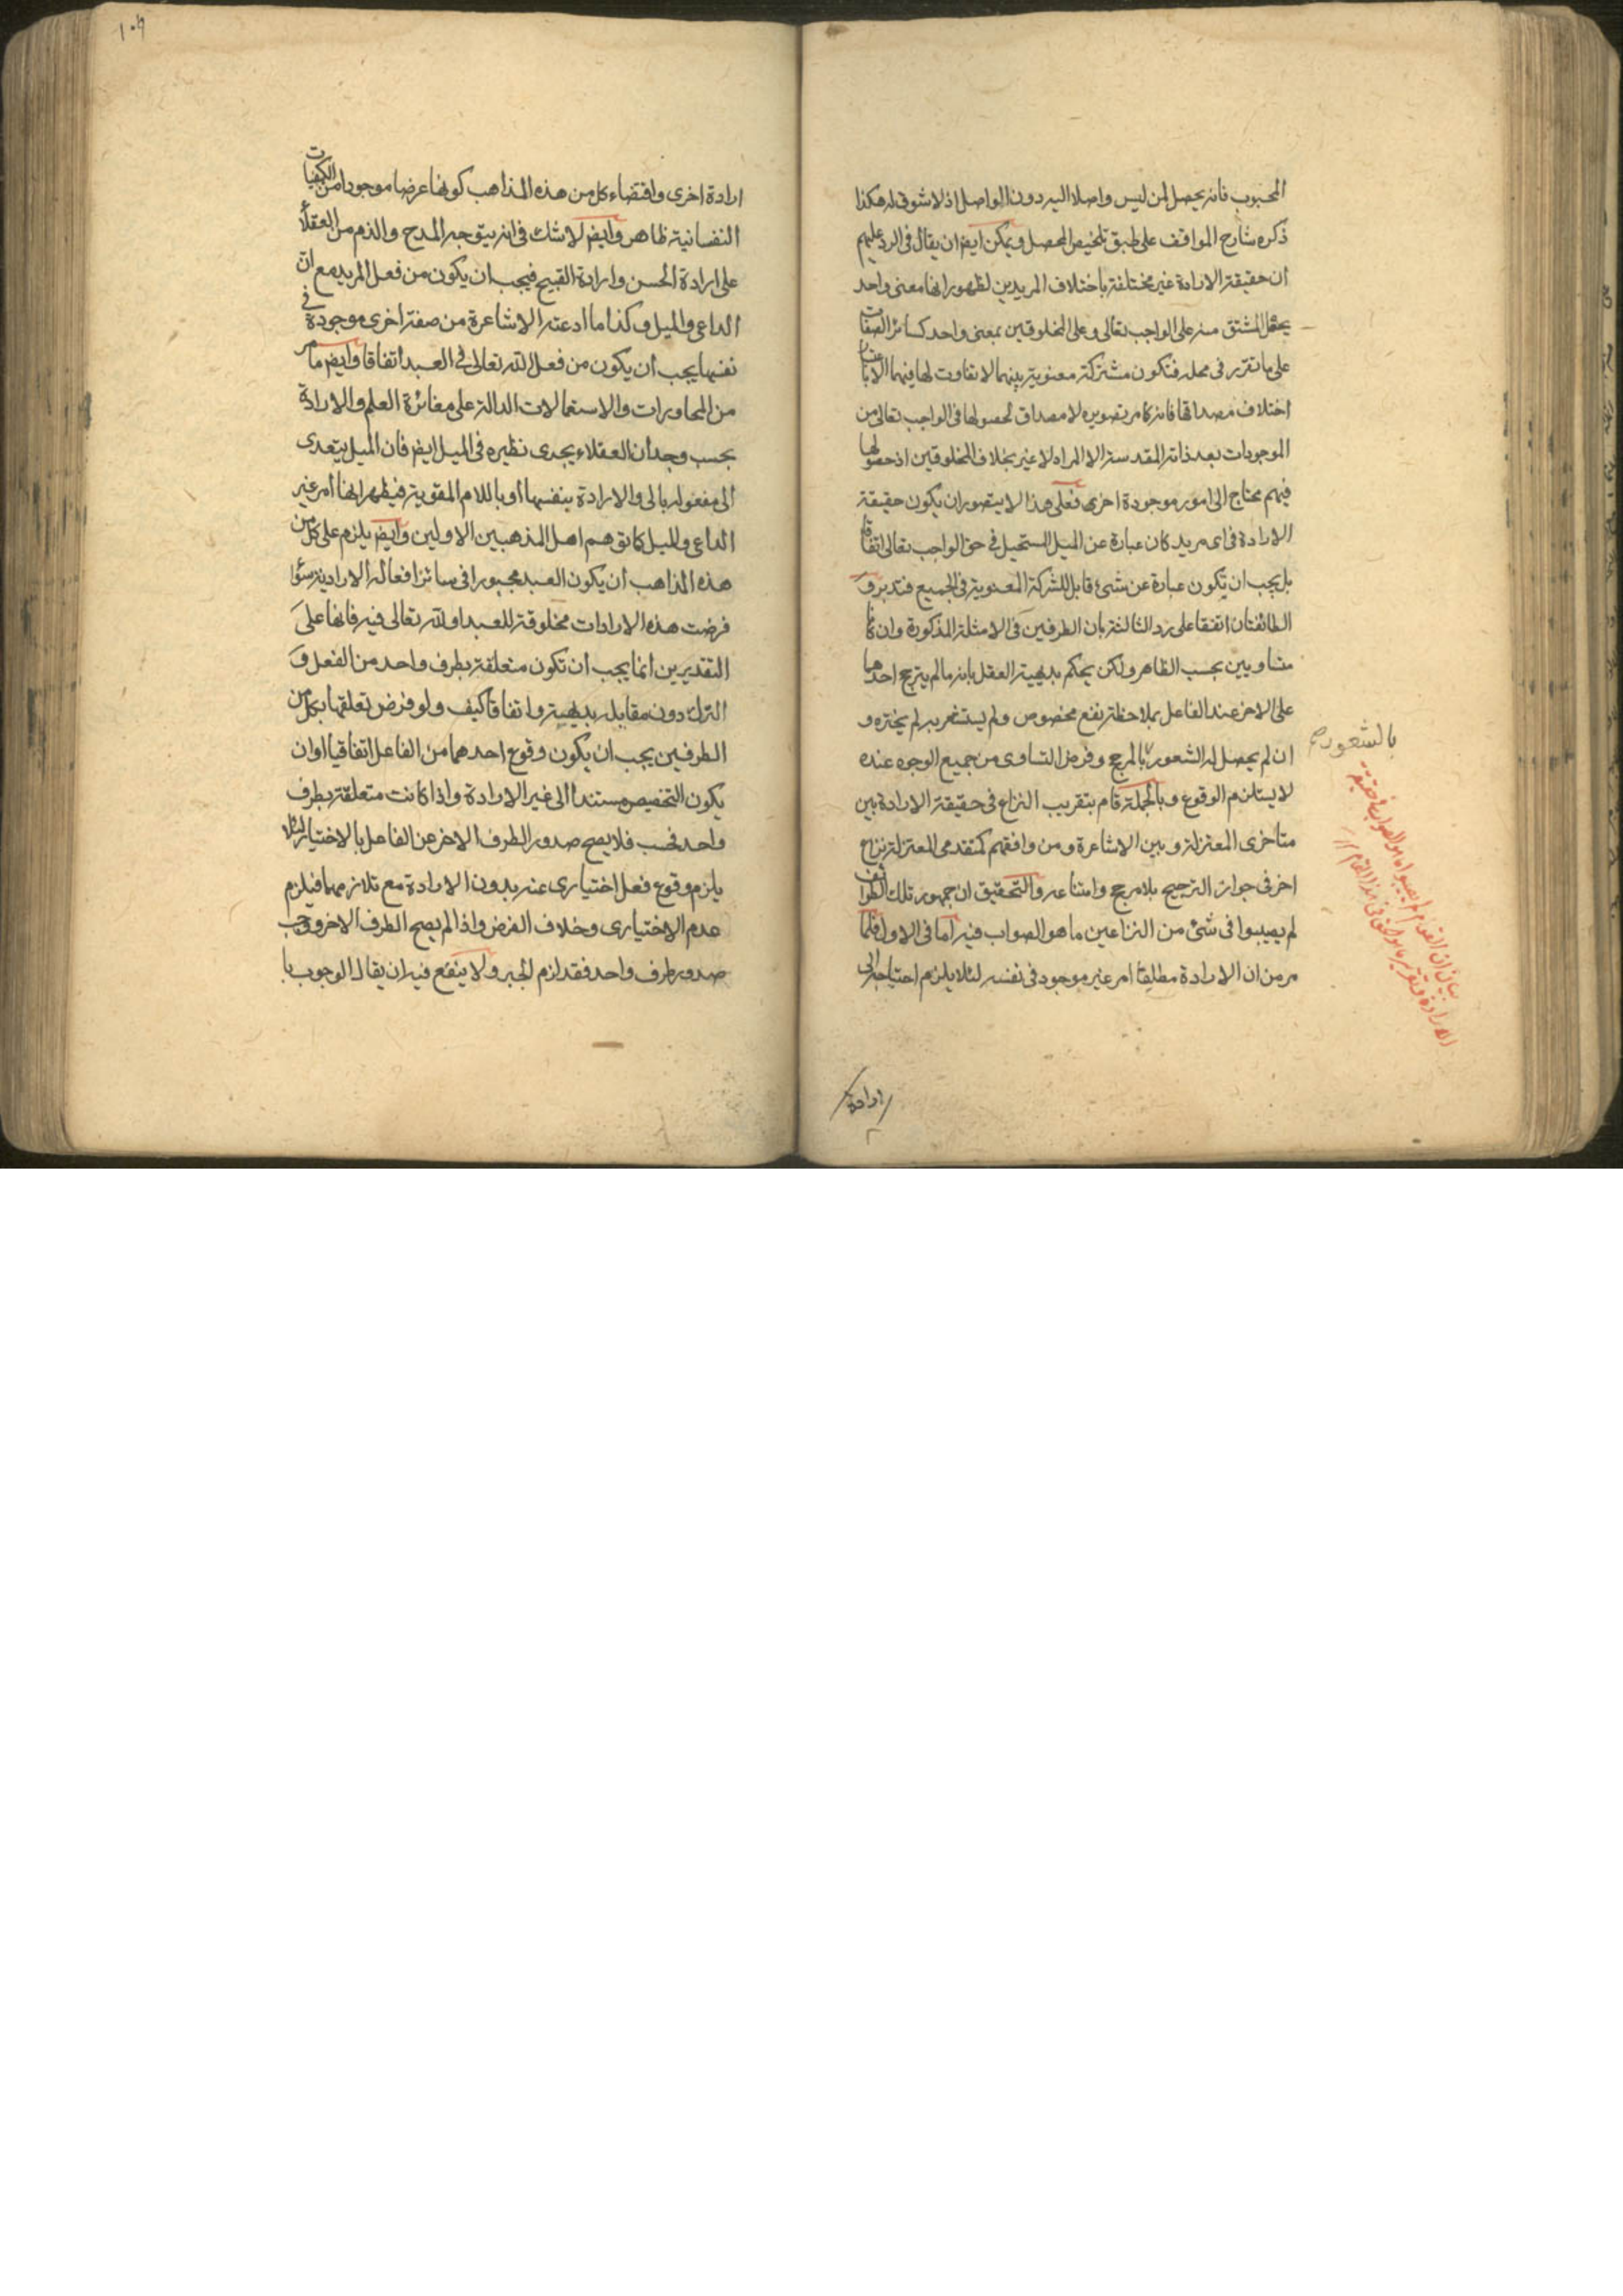 المحبوب فانه يحصل لمن ليس واصلا اليه دون الواصل اذ لا شوق له هكذا
ذكره شارح المواقف على طبق تلخيص المحصل ويمكن ايض ان يقال فى الرد عليهم
ان حقيقة الارادة غير مختلفة باختلاف المريدين لظهور انها معنى واحد
يحمل المشتق منه على الواجب تعالى وعلى المخلوقين بمعنى واحد كسائر الصفات
على ما تقرر فى محله فتكون مشتركة معنوية بينهما لا تفاوت لها فيهما الا باعتبار
اختلاف مصداقها فانه كما مر تصويره لا مصداق لحصولها فى الواجب تعالى من
الموجودات بعد ذاته المقدسة الا المراد لا غير بخلاف المخلوقين اذ حصولها
فيهم محتاج الى امور موجودة اخرى فعلى هذا لا يتصور ان يكون حقيقة
الارادة فى اى مريد كان عبارة عن الميل المستحيل فى حق الواجب تعالى اتفاقا
بل يجب ان تكون عبارة عن شئ قابل للشركة المعنوية فى الجميع فتدبر و
الطائفتان اتفقا على رد الثالثة بان الطرفين فى الامثلة المذكورة وان كانا
متساويين بحسب الظاهر ولكن يحكم بديهية العقل بانه ما لم يترجح احدهما
على الاخر عند الفاعل بملاحظة نفع مخصوص ولم يستشعر به لم يختره و
ان لم يحصل له الشعور بالمرجح وفرض التساوى من جميع الوجوه عنده
بالشعور
لا يستلزم الوقوع وبالجملة قام بتقريب النزاع فى حقيقة الارادة بين
متاخرى المعتزلة وبين الاشاعرة ومن وافقهم كمتقدمى المعتزلة نزاع
اخر فى جواز الترجيح بلا مرجح وامتناعه والتحقيق ان جمهور تلك الطوائف
لم يصيبوا فى شئ من النزاعين ما هو الصواب فيه اما فى الاول فلما
مر من ان الارادة مطلقا امر غير موجود فى نفسه لئلا يلزم احتياجه الى
بيان ان القوم لم يصيبوا ما هو الصواب فى حقيقة
الارادة وتقرير ما هو الحق فى هذا المقام
ارادة
ارادة اخرى واقتضاء كل من هذه المذاهب كونها عرضا موجودا من الكيفيات
النفسانية ظاهر وايض لا شك فى انه يتوجه المدح والذم من العقلاء
على ارادة الحسن وارادة القبيح فيجب ان يكون من فعل المريد مع ان
الداعى والميل وكذا ما ادعته الاشاعرة من صفة اخرى موجودة فى
نفسها يجب ان يكون من فعل الله تعالى فى العبد اتفاقا وايض ما مر
من المحاورات والاستعمالات الدالة على مغائرة العلم والارادة
بحسب وجدان العقلاء يجرى نظيره فى الميل ايض فان الميل يتعدى
الى مفعوله بالى والارادة بنفسها او باللام المقوية فيظهر انها امر غير
الداعى والميل كما توهم اهل المذهبين الاولين وايض يلزم على كل من
هذه المذاهب ان يكون العبد مجبورا فى سائر افعاله الارادية سواء
فرضت هذه الارادات مخلوقة للعبد او لله تعالى فيه فانها على
التقديرين انما يجب ان تكون متعلقة بطرف واحد من الفعل و
الترك دون مقابله بديهية واتفاقا كيف ولو فرض تعلقها بكل من
الطرفين يجب ان يكون وقوع احدهما من الفاعل اتفاقيا او ان
يكون التخصيص مستندا الى غير الارادة واذا كانت متعلقة بطرف
واحد فحسب فلا يصح صدور الطرف الاخر عن الفاعل بالاختيار لئلا
يلزم وقوع فعل اختيارى عنه بدون الارادة مع تلازمهما فيلزم
عدم الاختيارى وخلاف الفرض واذا لم يصح الطرف الاخر ووجب
صدور طرف واحد فقد لزم الجبر ولا ينفع فيه ان يقال الوجوب با